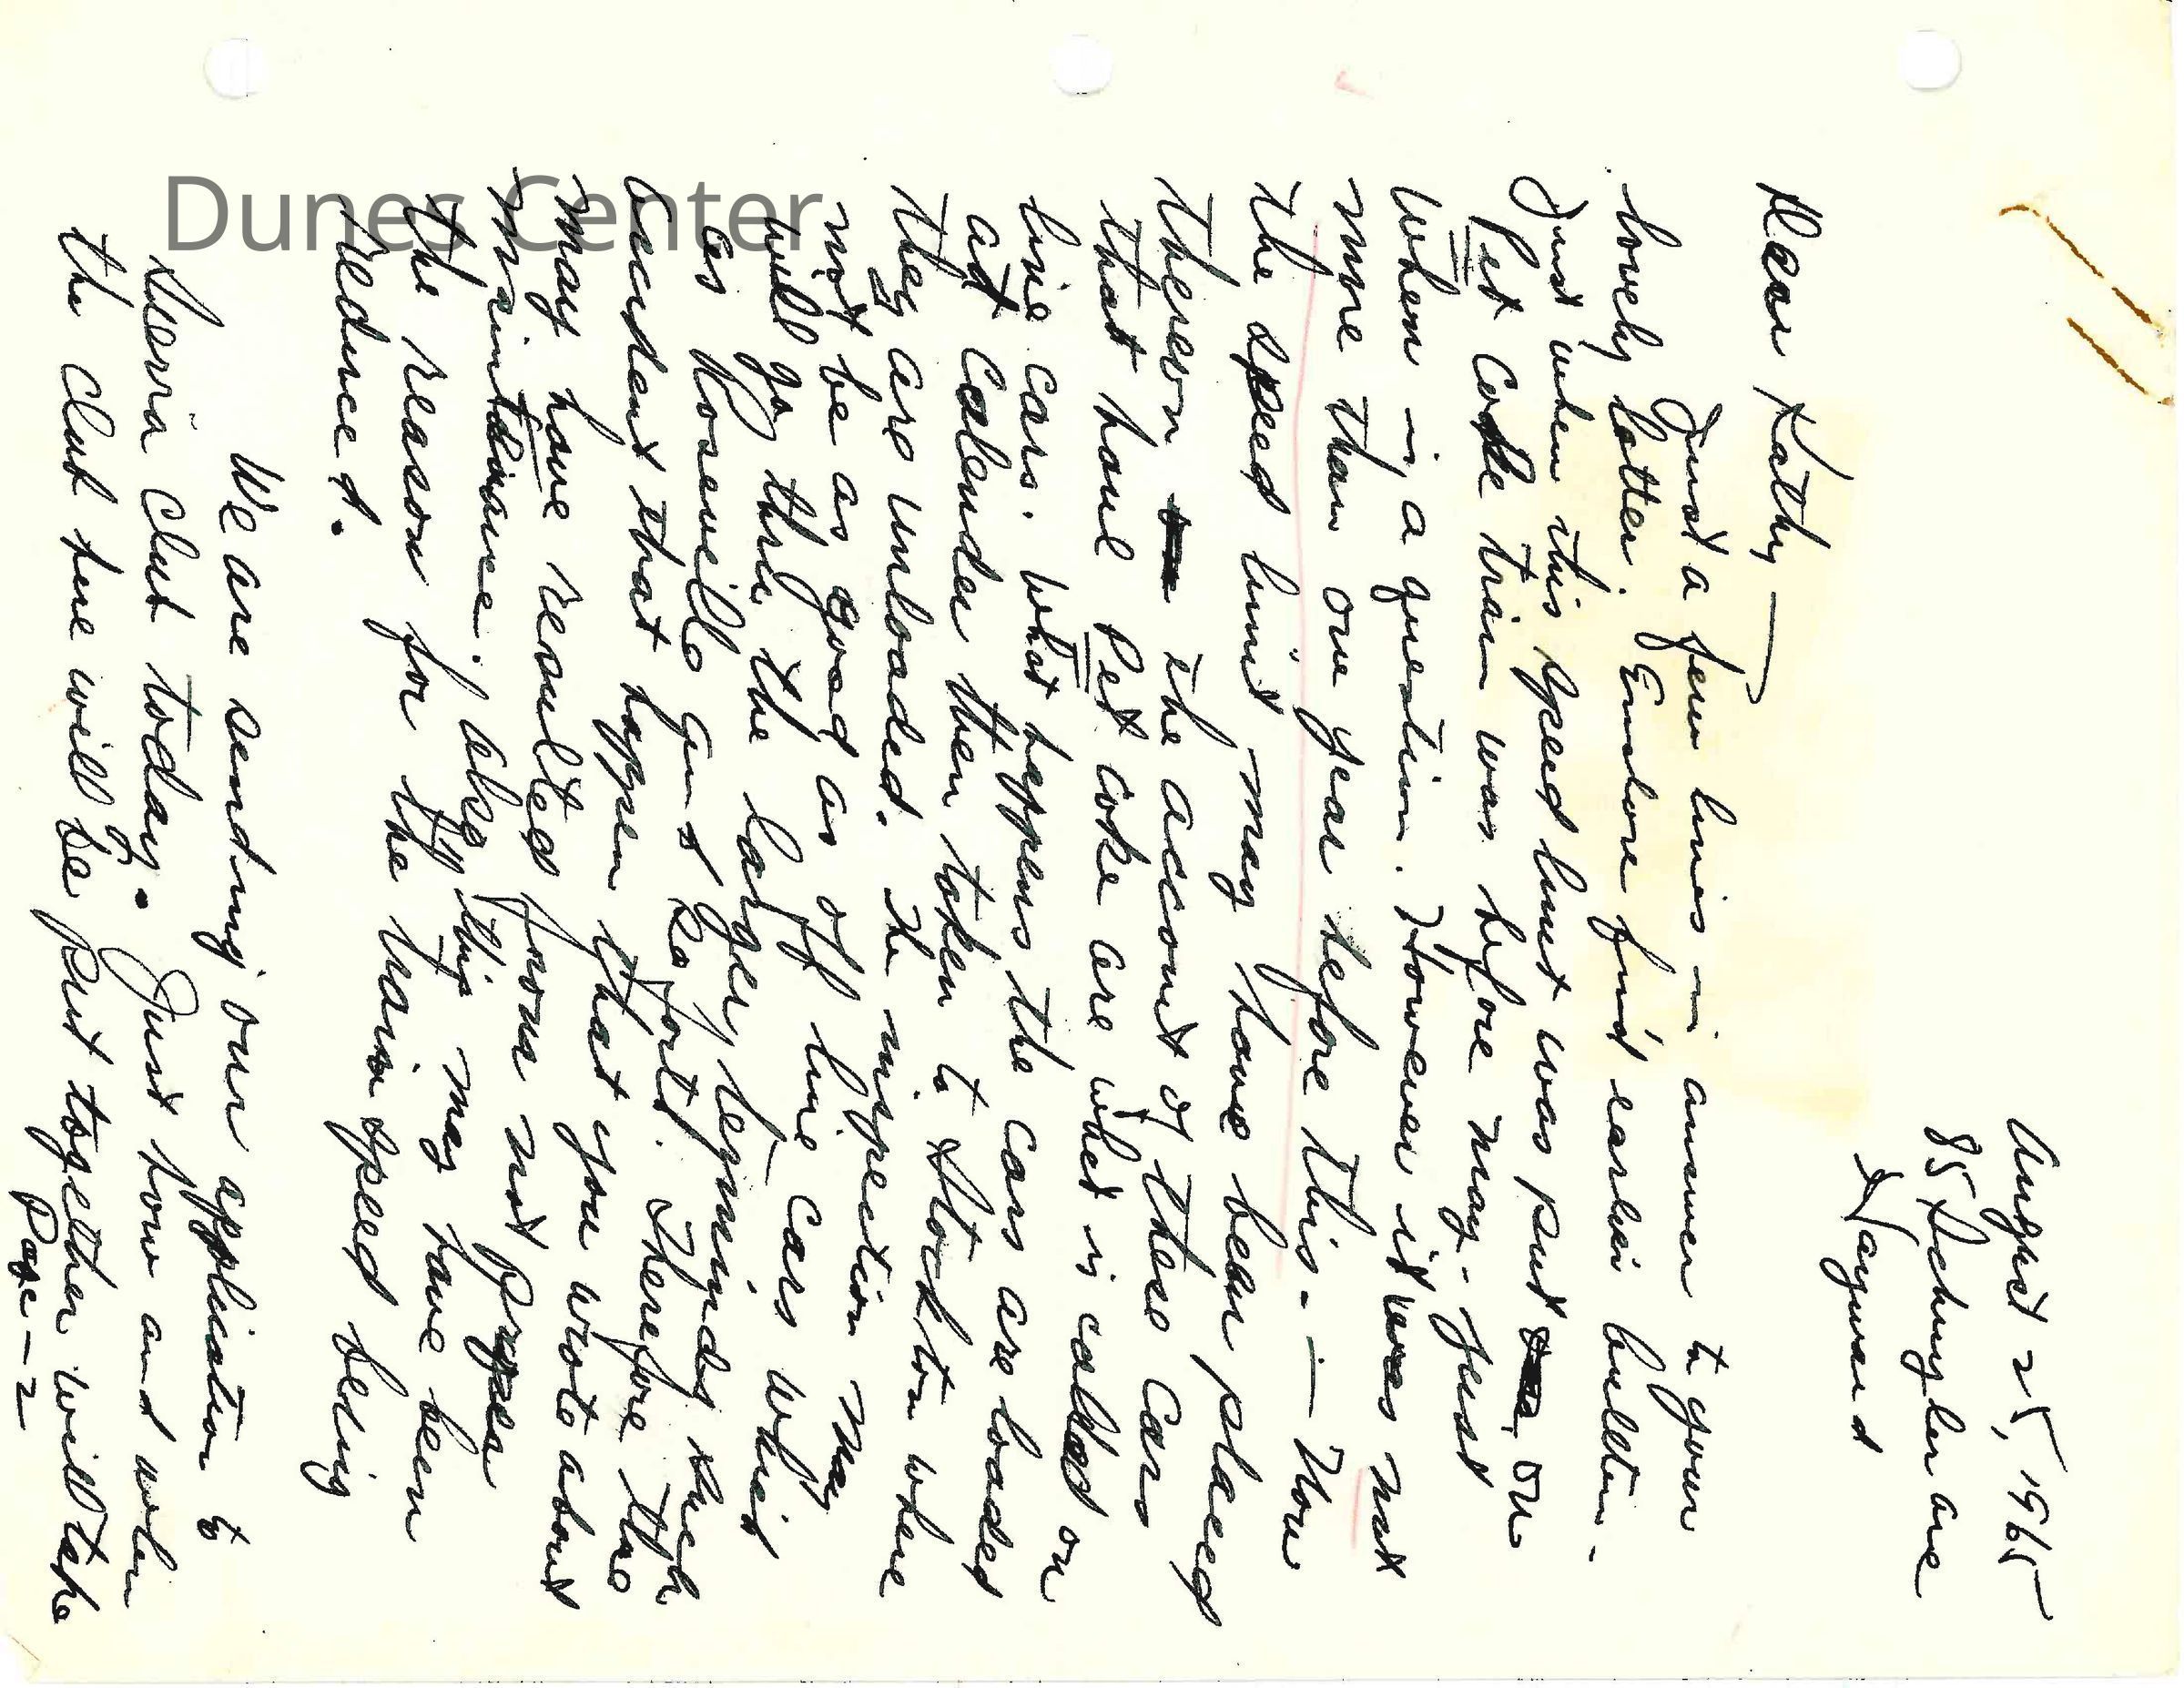 August 25, 1965
85 Schuyler ave
Hayward
Dear Kathy —
Just a few lines — in answer to your
lovely letter. Enclose find earlier bulletin.
Just when this speed limit was put on
Pet Coke train was before may - Just
when is a question. However it was not
more than one year before this. — Now
the speed limit may have been placed
thereon the account of these cars
that haul Pet coke are what is called on
line cars. What happens the cars are loaded
at Calender then taken to Stockton where
they are unloaded. The inspection may
not be as good as off line cars which
will go thru the larger terminals such
as Roseville and Ka Fort. Therefore the
accident that happen that you wrote about
may have resulted from not proper
maintainance. also this may have been
the reason for the train speed being
reduced.
We are sending our application to
Sierra Club today. Just how and when
the club ture will be put together will take
Page - 2
Dunes Center